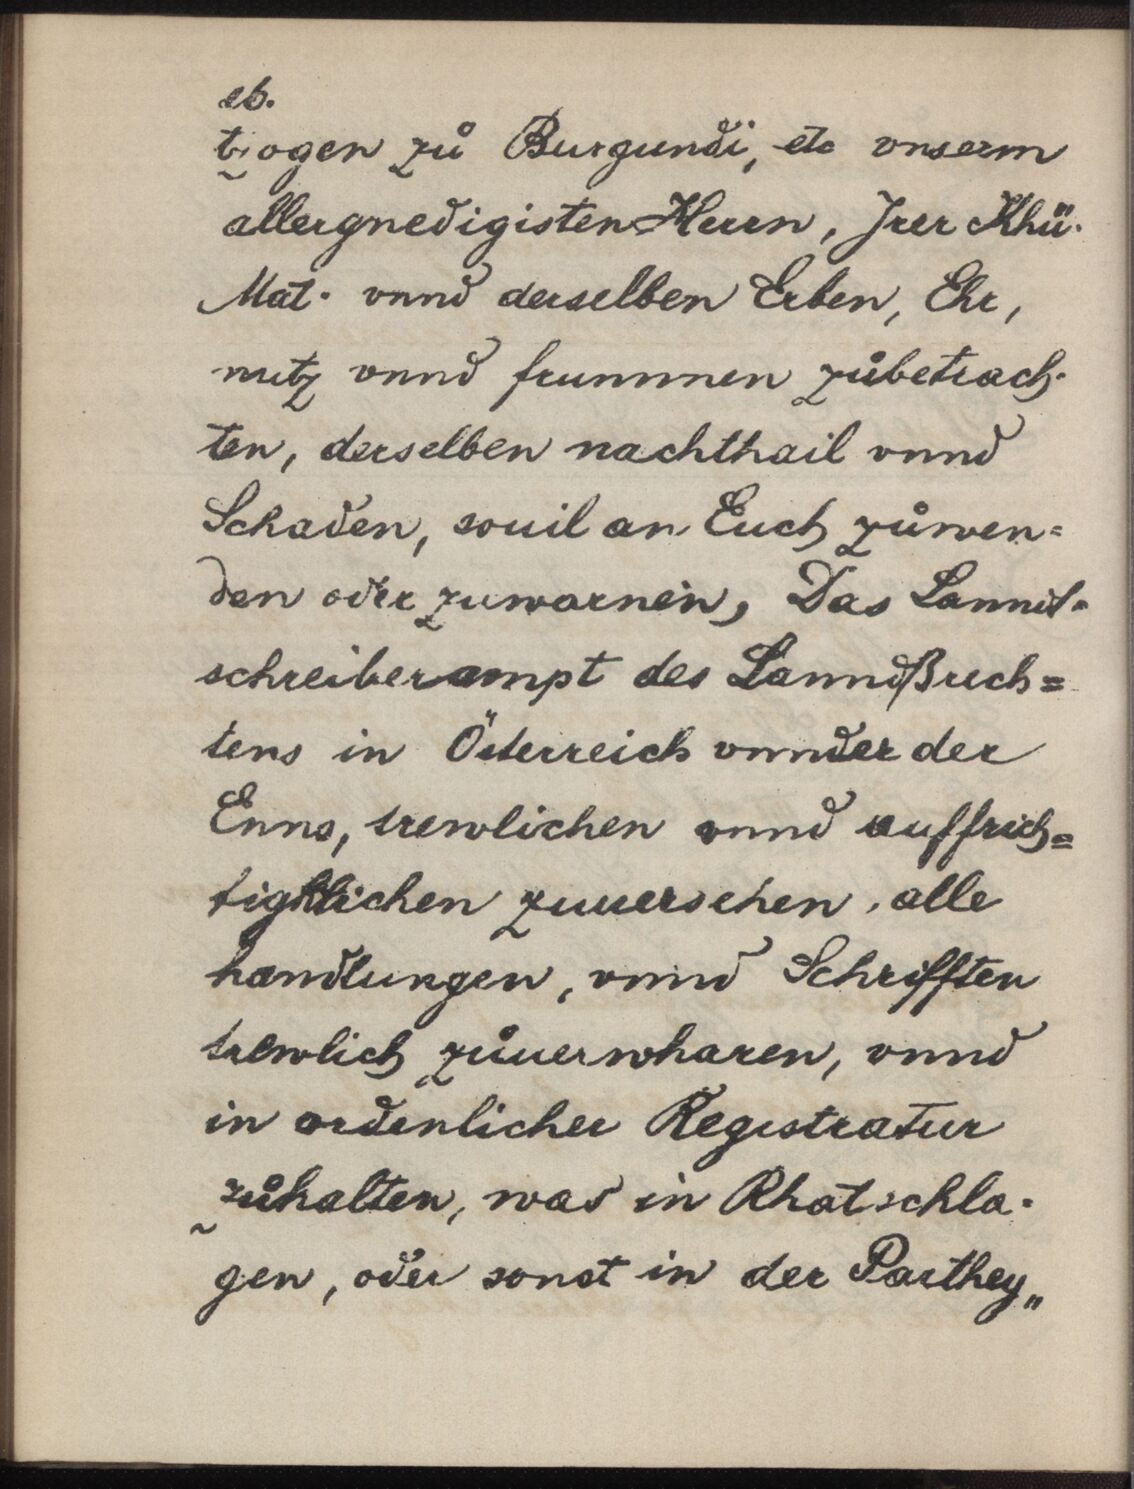 eb.
tzogen zů Burgundi, etc vnserm
allergnedigisten Herrn, Jrer Khü.
Mat. vnnd derselben Erben, Ehr,
nutz vnnd frummen zůbetrach-
ten, derselben nachthail vnnd
Schaden, souil an Euch zůwen=
den oder zuwarnen, Das Lannd=
schreiberampt des LanndßRech=
tens in Österreich vnnder der
Enns, trewlichen vnnd auffrich=
tigklichen zuuersehen, alle
handlungen, vnnd Schrifften
trewlich zůuerwharen, vnnd
in ordenlicher Registratur
zůhalten, was in Rhatschla-
gen, oder sonst in der Parthey„